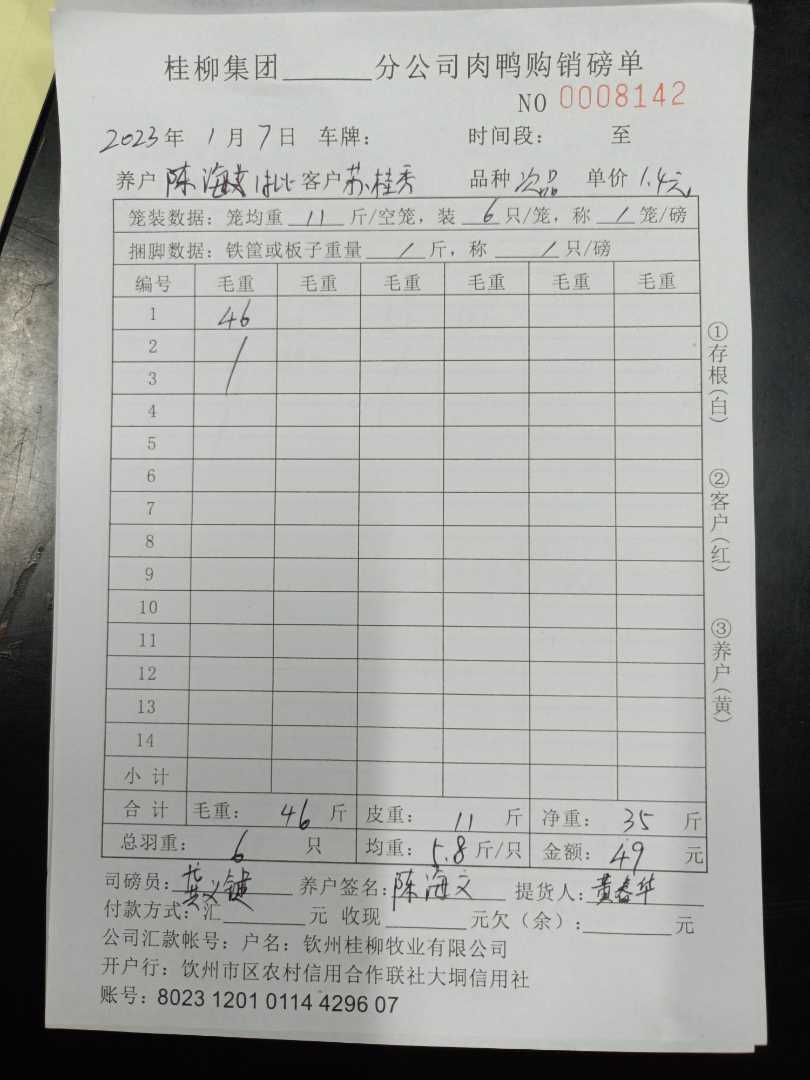 桂柳集团______分公司肉鸭购销磅单
NO 0008142
2023年 1月7日 车牌: 时间段: 至
养户 陈海文 客户 苏桂秀 品种 次品 单价 1.4元
笼装数据: 笼均重 11 斤/空笼, 装 6 只/笼, 称 1 笼/磅
捆脚数据: 铁筐或板子重量 / 斤, 称 / 只/磅
编号 毛重 毛重 毛重 毛重 毛重 毛重
1 46
2 /
3
4
5
6
7
8
9
10
11
12
13
14
小计
合计 毛重: 46 斤 皮重: 11 斤 净重: 35 斤
总羽重: 6 只 均重: 5.8 斤/只 金额: 49 元
司磅员: 养户签名: 陈海文 提货人: 黄春华
付款方式: 汇______元 收现______元欠(余):______元
公司汇款帐号: 户名: 钦州桂柳牧业有限公司
开户行: 饮州市区农村信用合作联社大垌信用社
账号: 8023 1201 0114 4296 07
①存根(白)
②客户(红)
③养户(黄)